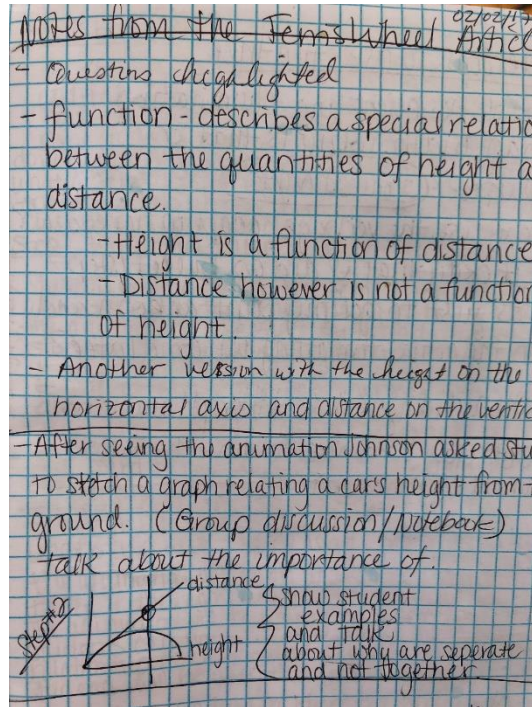 02/02/1
Notes from the Ferris Wheel Artic
- Questins highlighted
- function - describes a special relatio
between the quantities of height a
distance.
- Height is a function of distance
- Distance however is not a function
of height.
- Another version with the height on the
horizontal axis and distance on the vertic
- After seeing the animation Johnson asked stu
to sketch a graph relating a cars height from
ground. (Group discussion/Notebook)
talk about the importance of.
Step#2
distance
height
show student
examples
and talk
about why are seperate
and not together.